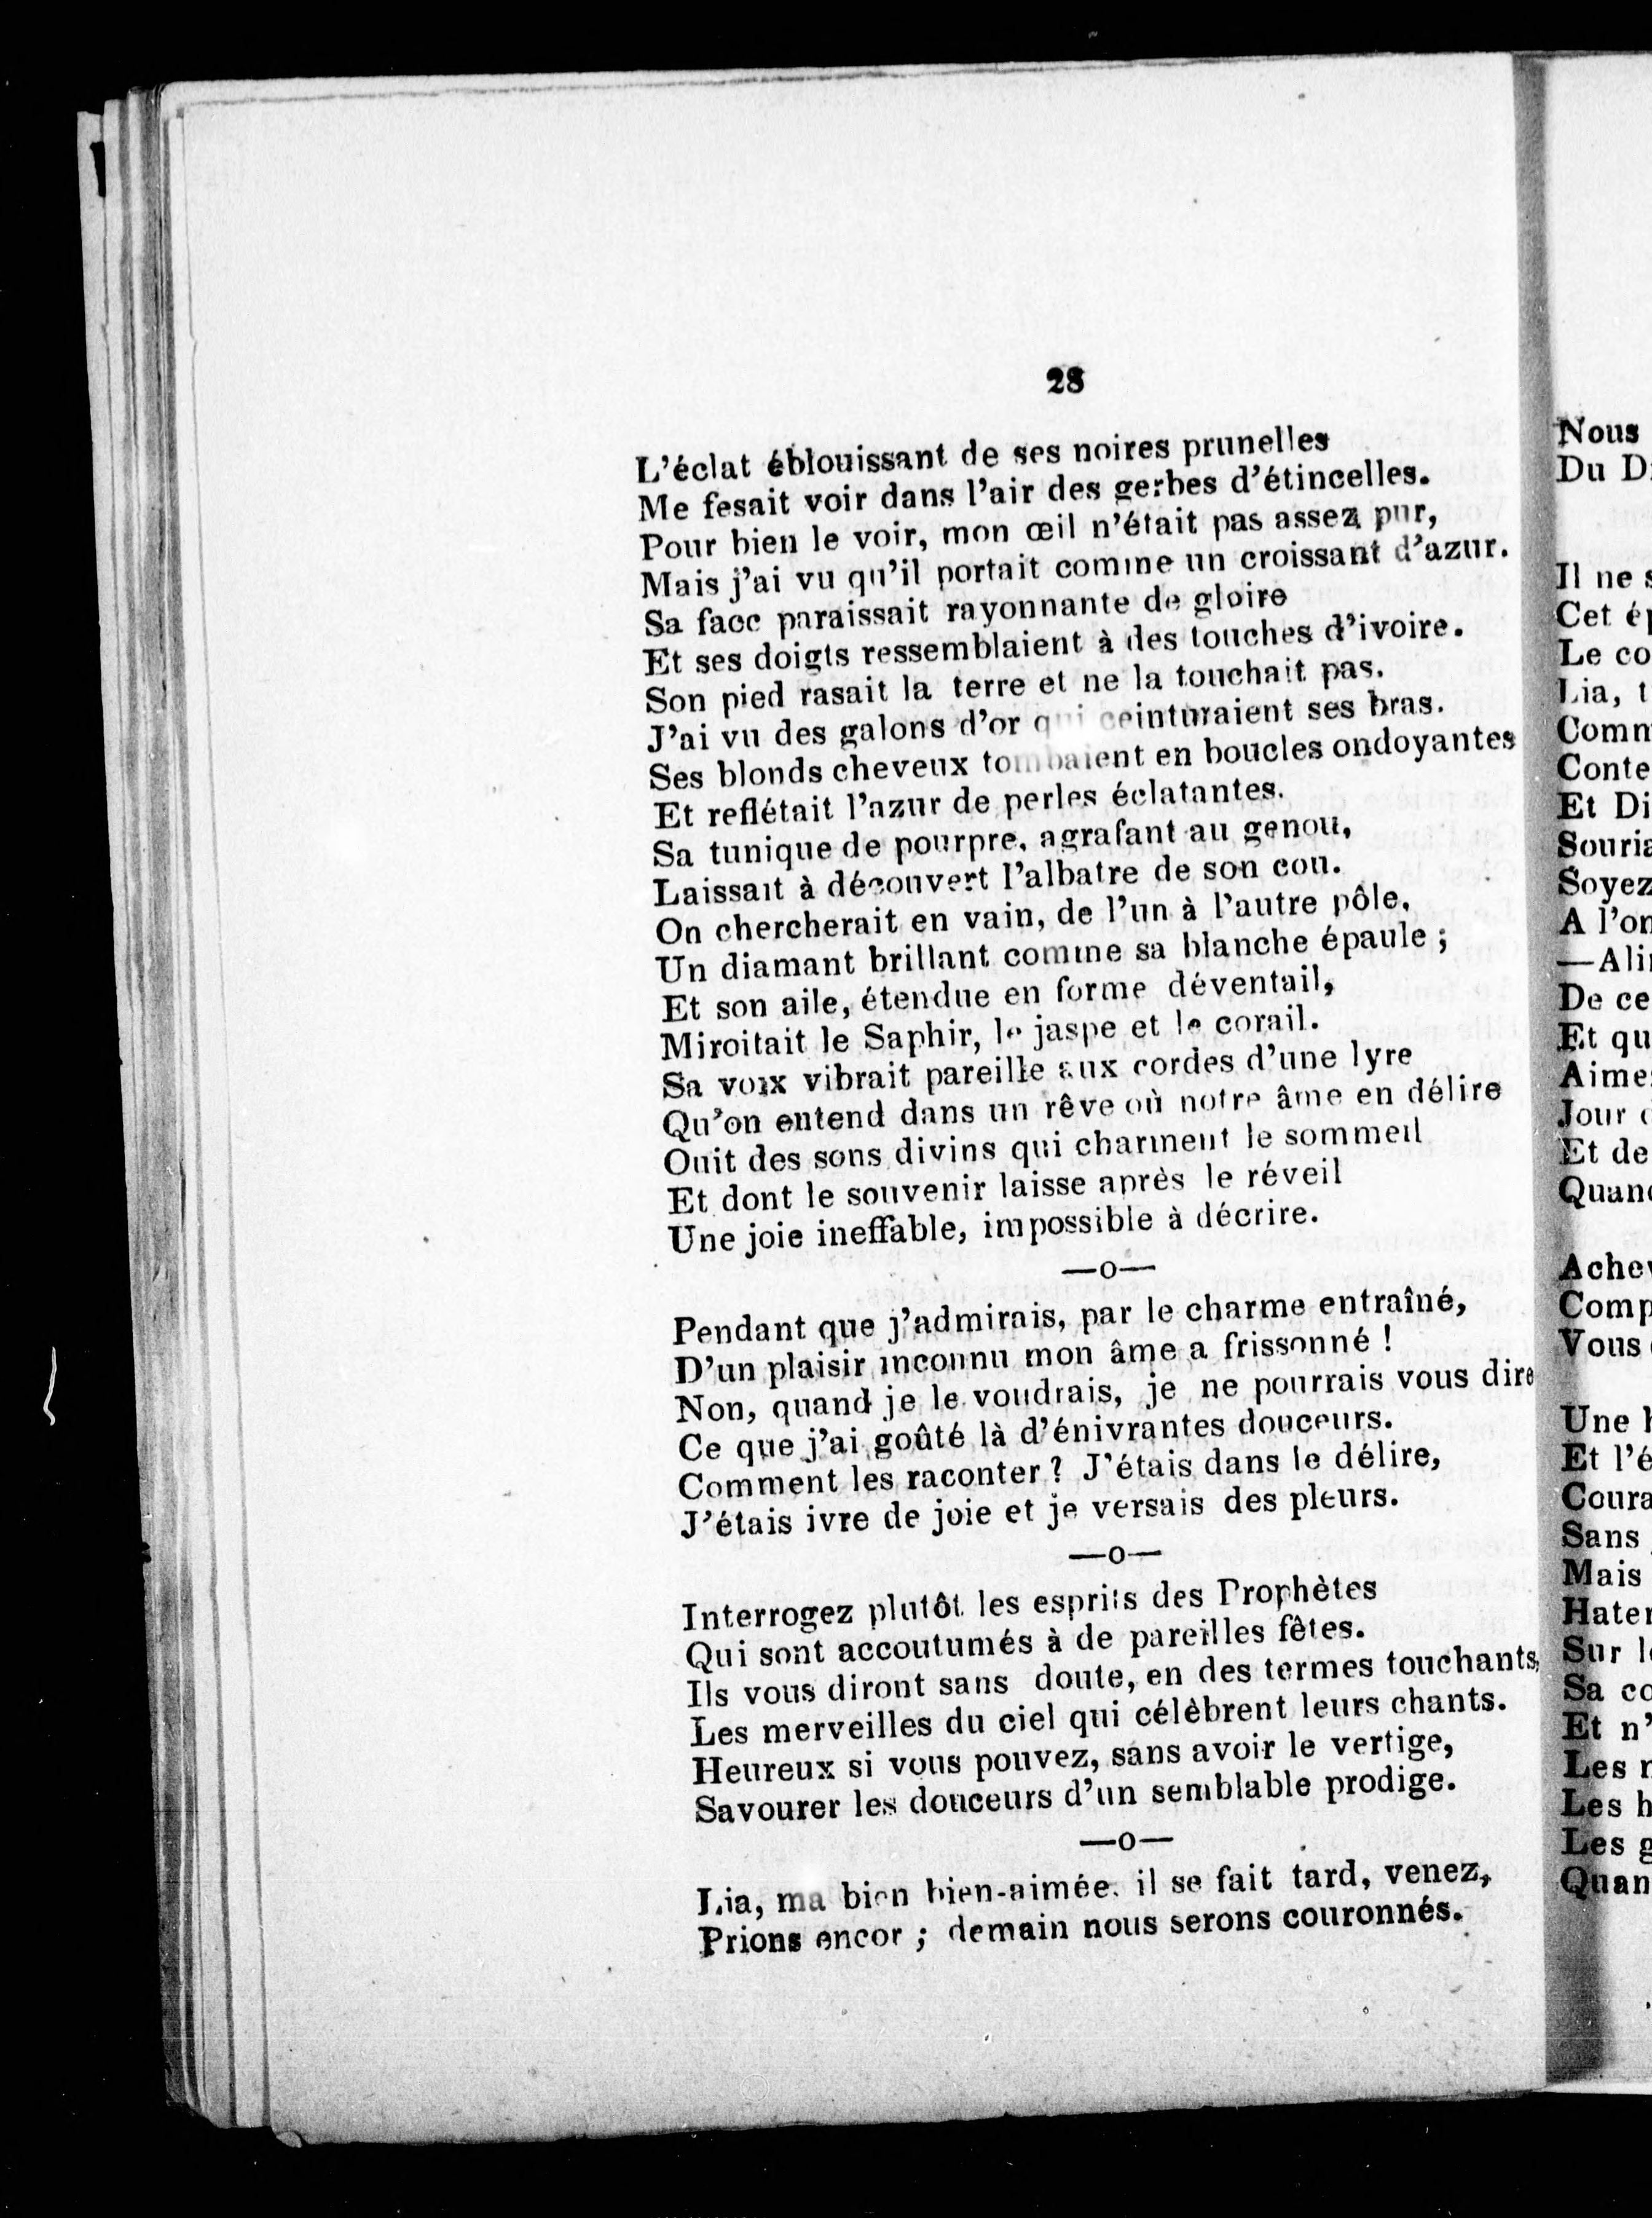 28
L'éclat éblouissant de ses noires prunelles
Me fesait voir dans l'air des gerbes d'étincelles.
Pour bien le voir, mon œil n'était pas assez pur,
Mais j'ai vu qu'il portait comme un croissant d'azur.
Sa face paraissait rayonnante de gloire
Et ses doigts ressemblaient à des touches d'ivoire.
Son pied rasait la terre et ne la touchait pas.
J'ai vu des galons d'or qui ceinturaient ses bras.
Ses blonds cheveux tombaient en boucles ondoyantes
Et reflétait l'azur de perles éclatantes.
Sa tunique de pourpre, agrafant au genou,
Laissait à découvert l'albatre de son cou.
On chercherait en vain, de l'un à l'autre pôle,
Un diamant brillant comme sa blanche épaule ;
Et son aile, étendue en forme déventail,
Miroitait le Saphir, le jaspe et le corail.
Sa voix vibrait pareille aux cordes d'une lyre
Qu'on entend dans un rêve où notre âme en délire
Ouit des sons divins qui charment le sommeil
Et dont le souvenir laisse après le réveil
Une joie ineffable, impossible à décrire.
—o—
Pendant que j'admirais, par le charme entraîné,
D'un plaisir inconnu mon âme a frissonné !
Non, quand je le voudrais, je ne pourrais vous dire
Ce que j'ai goûté là d'énivrantes douceurs.
Comment les raconter ? J'étais dans le délire,
J'étais ivre de joie et je versais des pleurs.
—o—
Interrogez plutôt les esprits des Prophètes
Qui sont accoutumés à de pareilles fêtes.
Ils vous diront sans doute, en des termes touchants,
Les merveilles du ciel qui célèbrent leurs chants.
Heureux si vous pouvez, sans avoir le vertige,
Savourer les douceurs d'un semblable prodige.
—o—
Lia, ma bien bien-aimée, il se fait tard, venez,
Prions encor ; demain nous serons couronnés.
Nous
Du
Il ne
Cet
Le
Lia,
Et
Soyez
A
De ce
Et
Jour
Et de
Vous
Une
Et
Sans
Mais
Sur
Sa
Et
Les
Les
Les